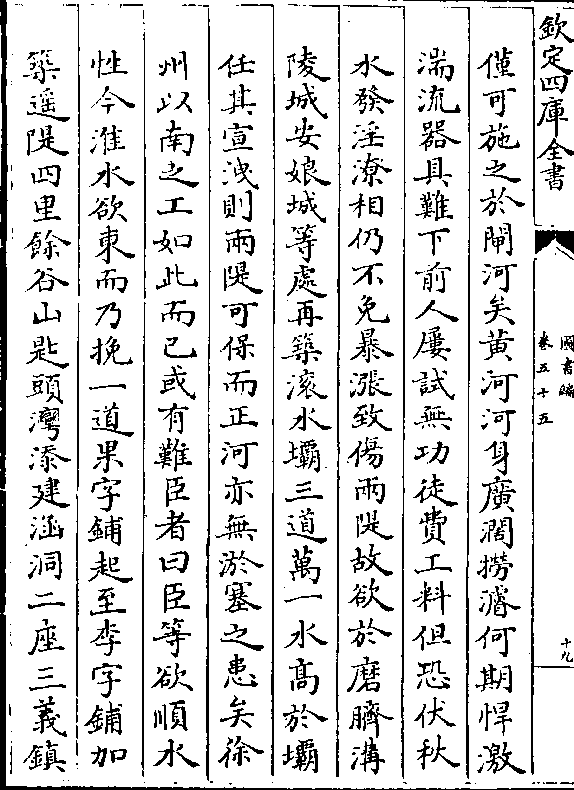 欽定四庫全書
圖書編
卷五十五
十九
僅可施之於閘河矣黄河河身廣濶撈濬何期悍激
湍流器具難下前人屢試無功徒費工料但恐伏秋
水發淫潦相仍不免暴漲致傷兩隄故欲於磨臍溝
陵城安娘城等處再築滚水壩三道萬一水髙於壩
任其宣洩則兩隄可保而正河亦無淤塞之患矣徐
州以南之工如此而已或有難臣者曰臣等欲順水
性今淮水欲東而乃挽一道果字鋪起至李字鋪加
築遥隄四里餘谷山匙頭灣添建涵洞二座三義鎮